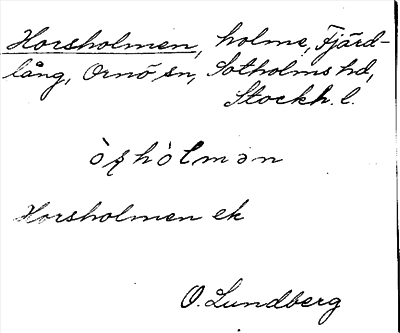 Horsholmen, holme, Fjärd-
lång, Ornö sn, Sotholms hd,
Stockh. l.
òʂhòlmən
Horsholmen ek
O. Lundberg